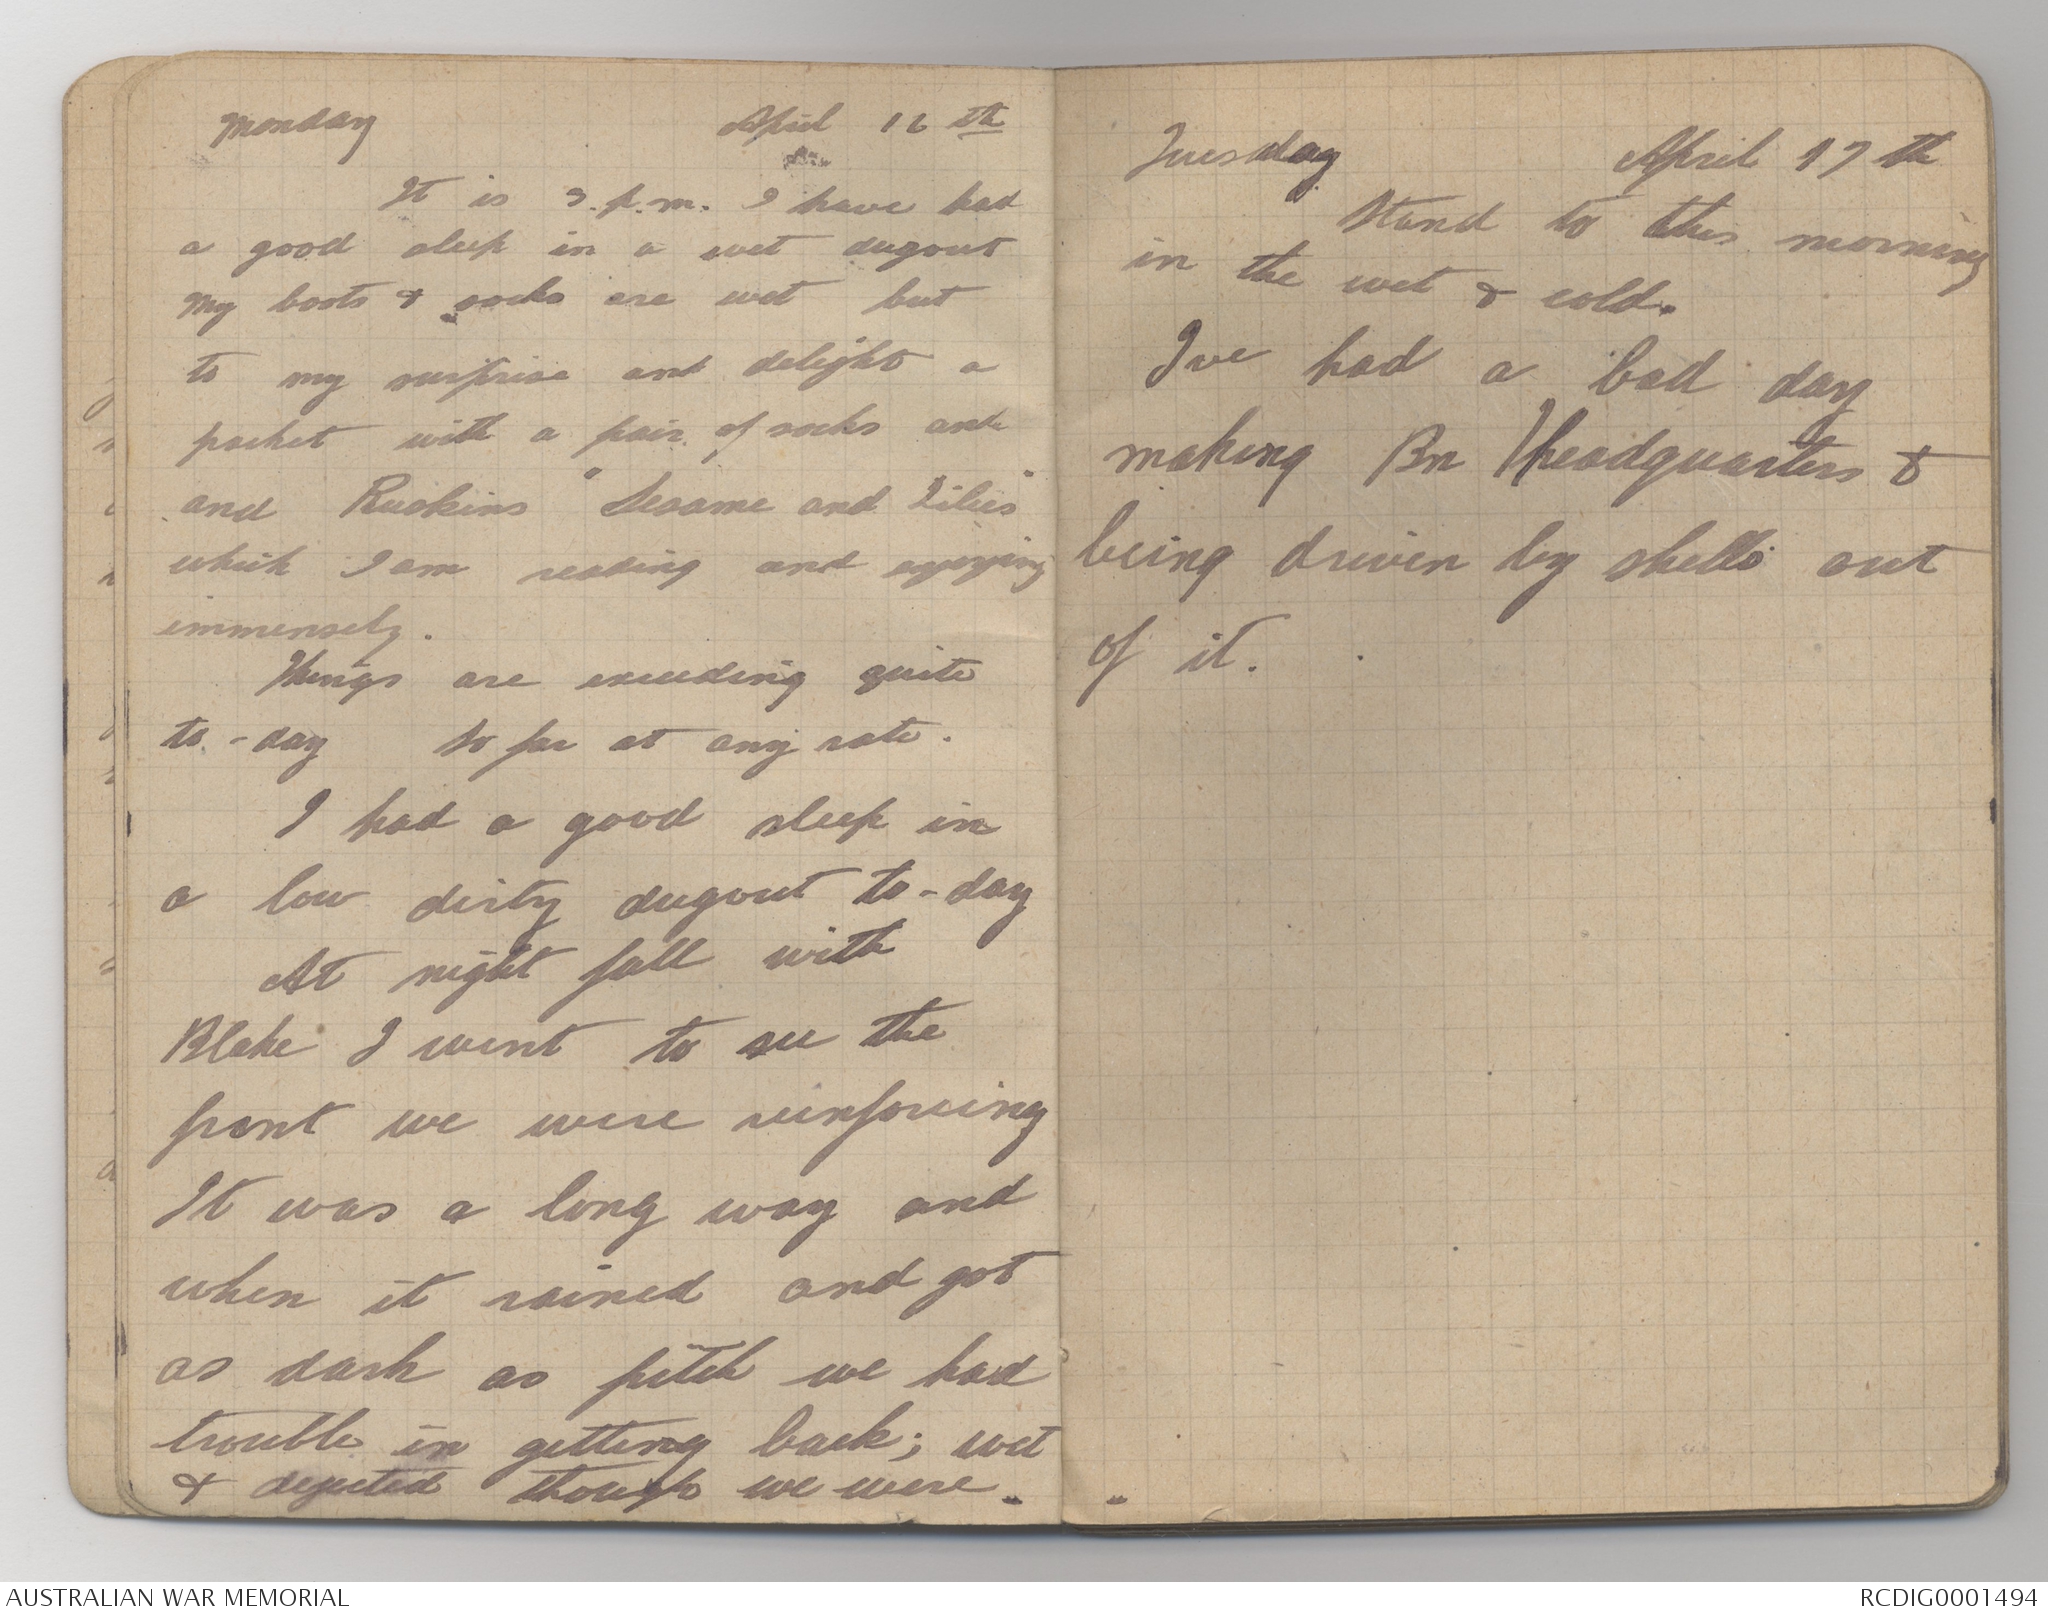 Monday April 16th
It is 3.p.m. I have had
a good sleep in a wet dugout
My boots & socks are wet but
to my surprise and delight a
packet with a pair of socks and
and Ruskins "Sesame and Lilies"
which I am reading and
immensely.
Things are exceeding quite
to-day so far at any rate.
I had a good sleep in
a low dirty dugout to-day
At night fall with
Blake I went to see the
front we were reinforcing
It was a long way and
when it rained and got
as dark as pitch we had
trouble in getting back; wet
& dejected though we were.
Tuesday April 17th
Stand to this morning
in the wet & cold.
I've had a bad day
making Bn Headquarters &
being driven by shells out
of it.
AUSTRALIAN WAR MEMORIAL
RCDIG0001494